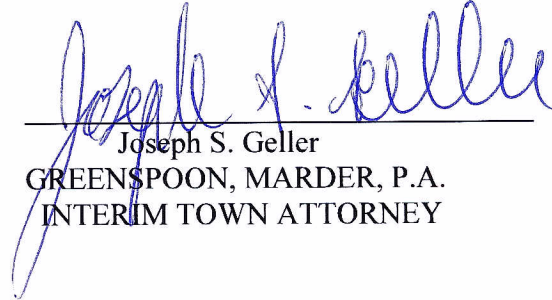 Joseph S. Geller
Joseph S. Geller
GREENSPOON, MARDER, P.A.
INTERIM TOWN ATTORNEY